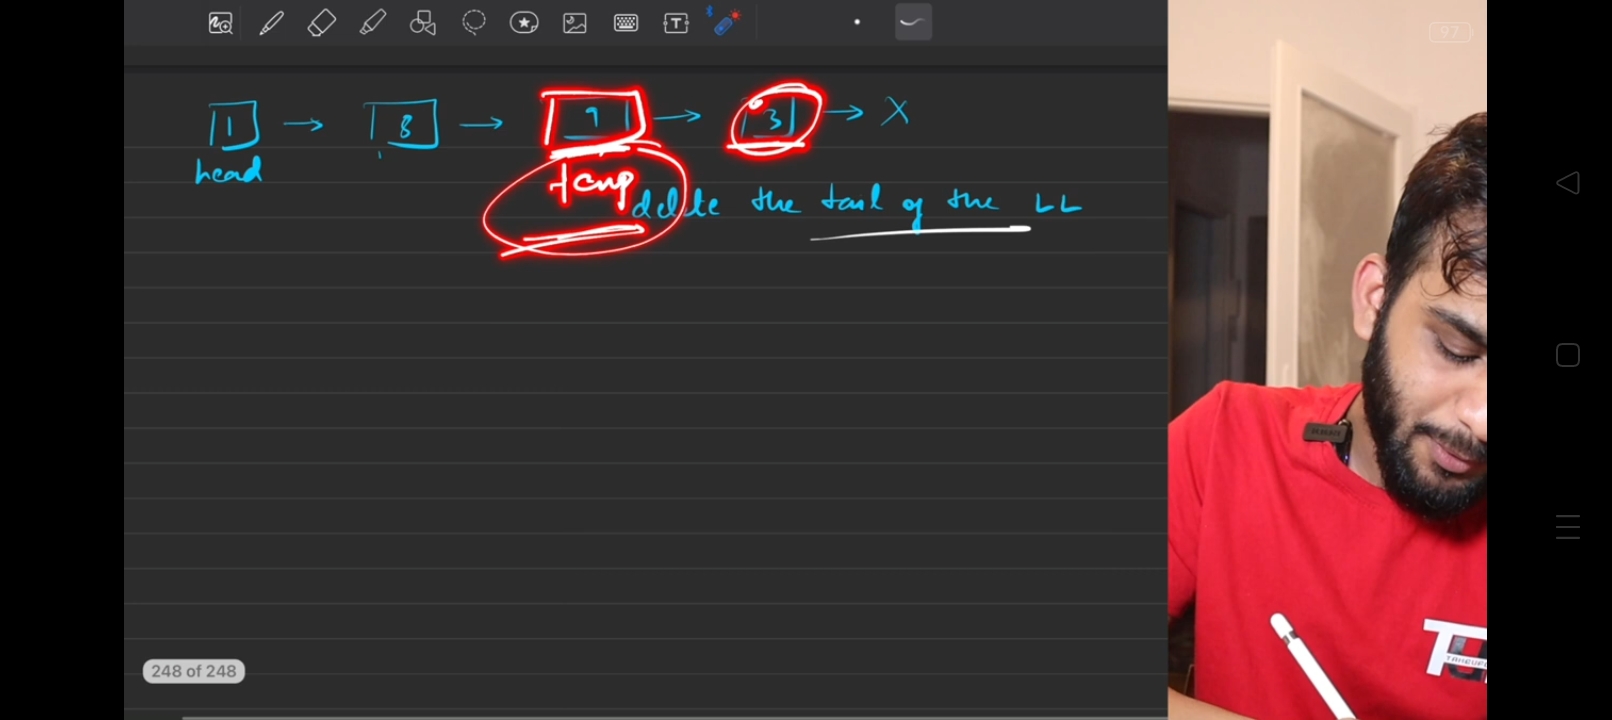 97
1 → 8 → 9 → 3 → X
head
temp
delete the tail of the LL
248 of 248